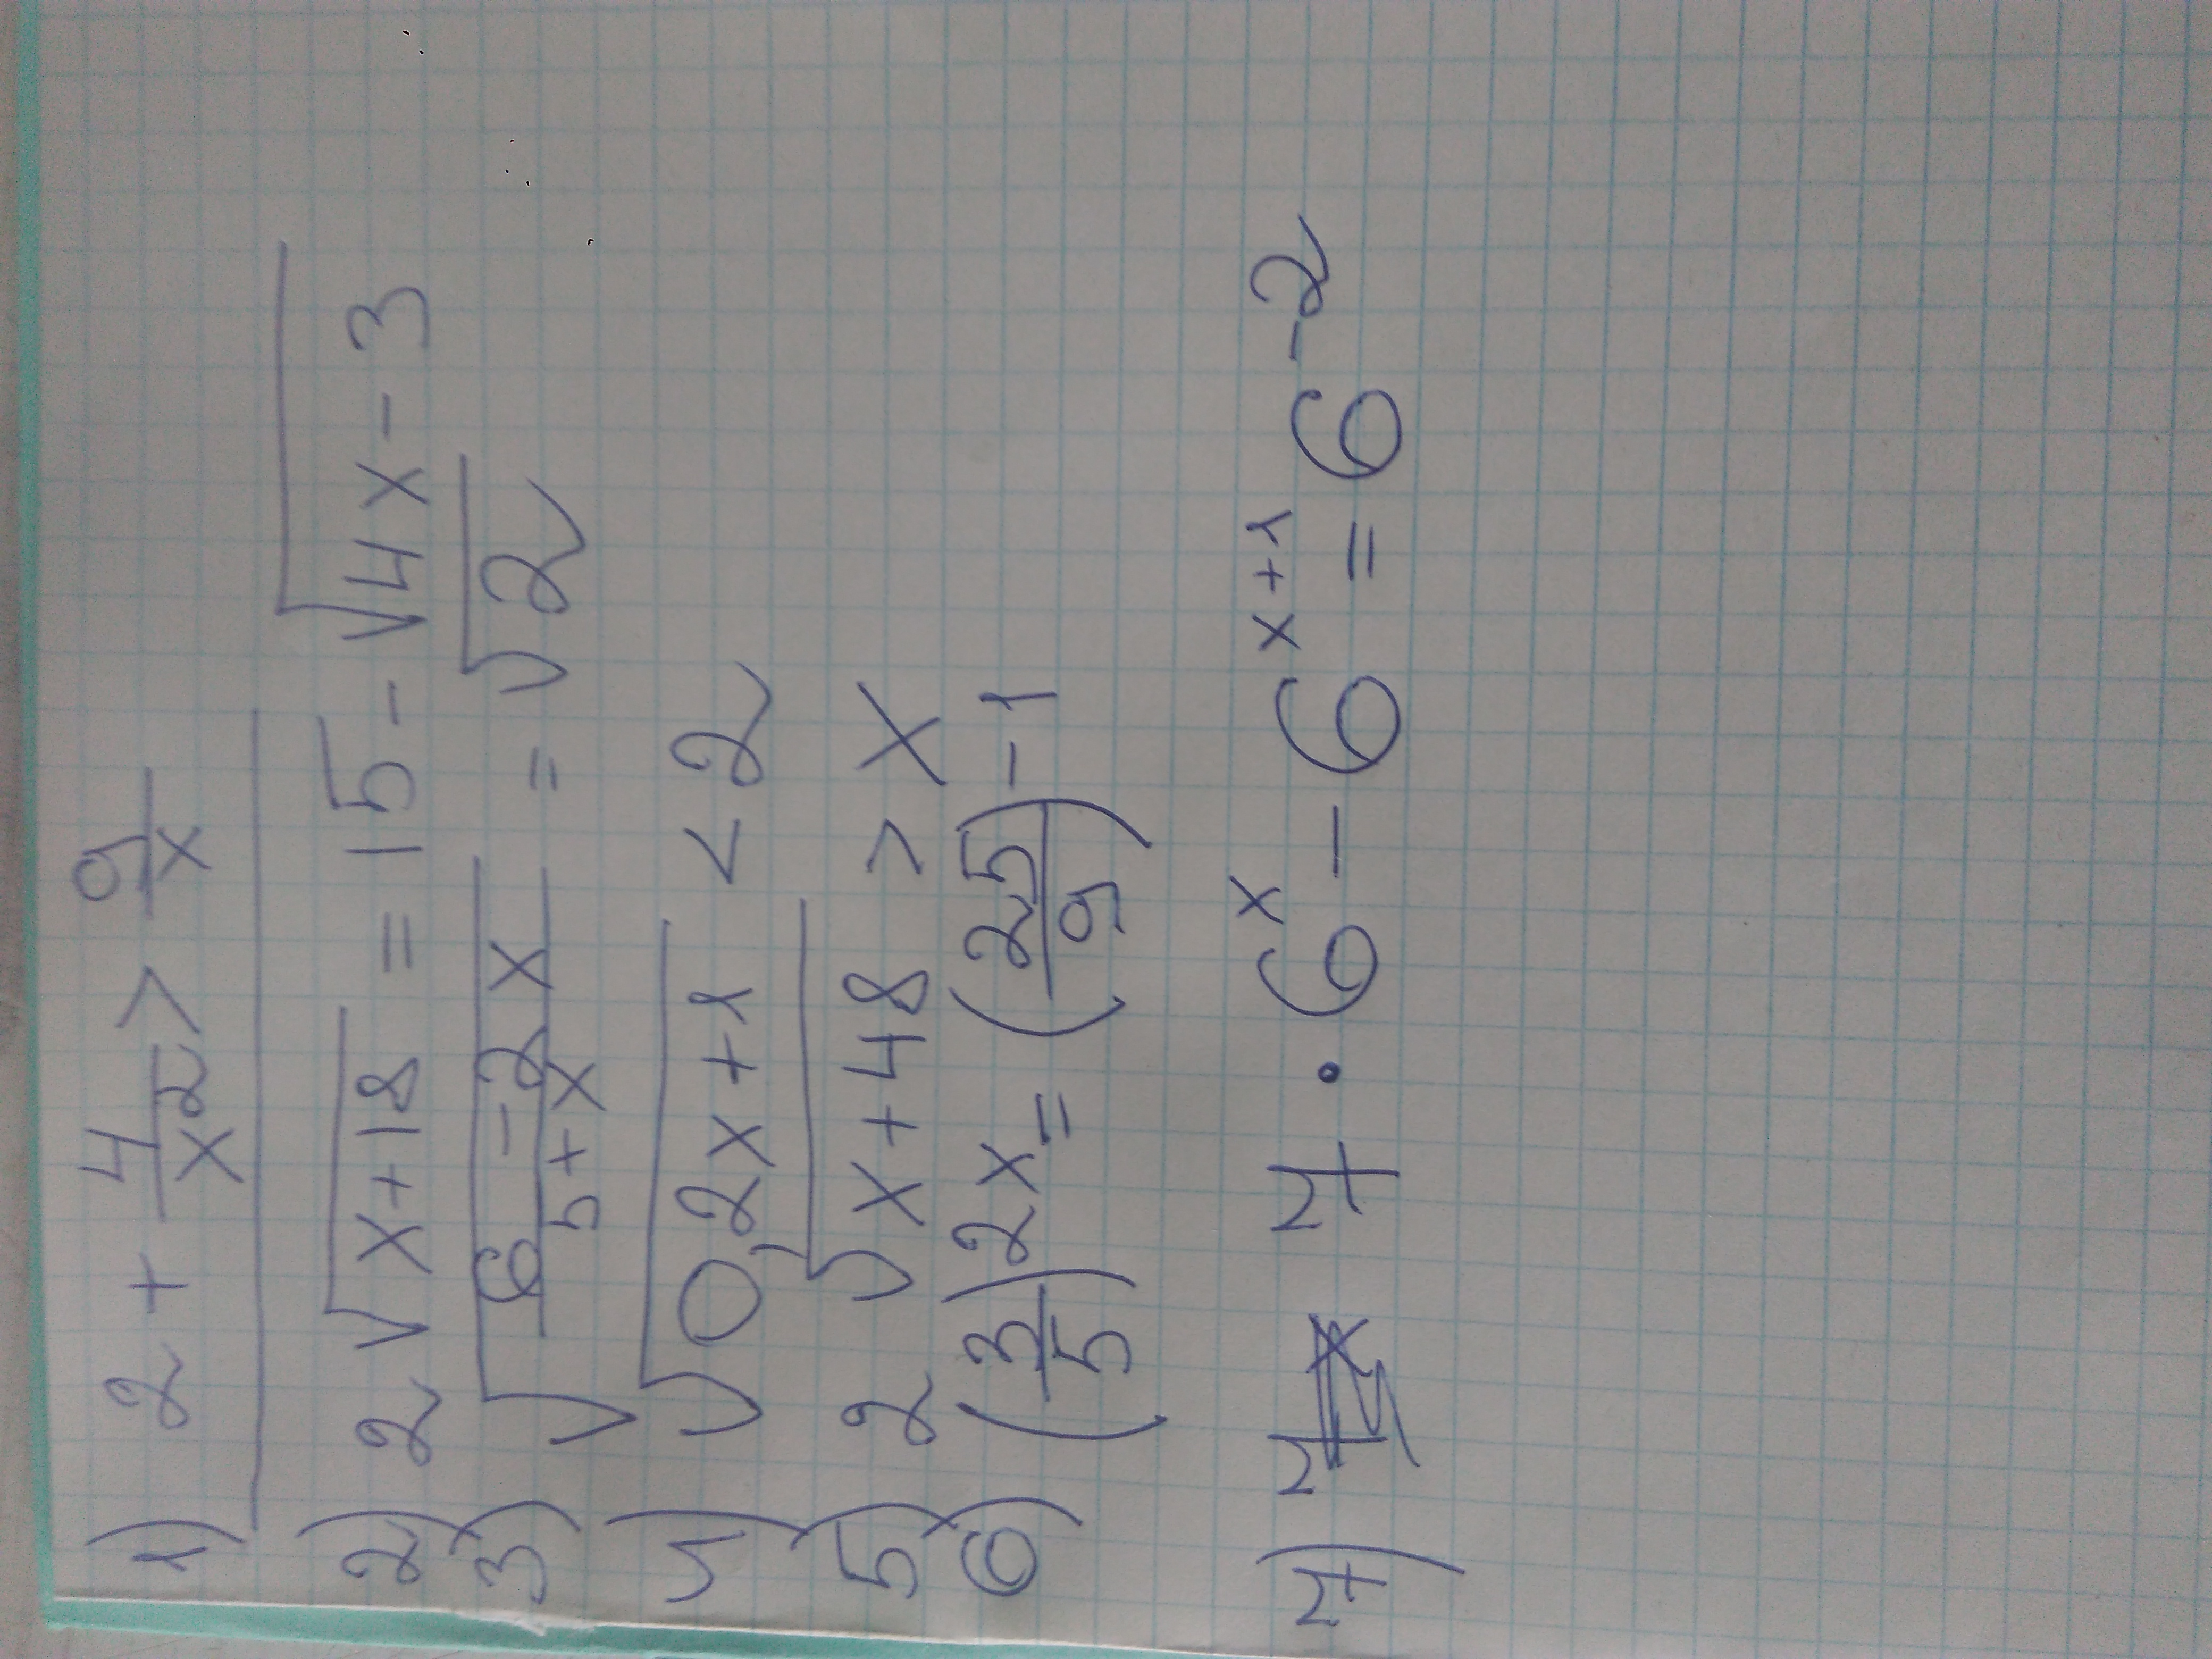 1) 2 + 4/x² > 9/x
2) 2√(x+18) = 15 - √(4x-3)
3) √((6-2x)/(5+x)) = √2
4) √(0,2x+1) < 2
5) 2√(x+48) > x
6) (3/5)2x = (25/9) - 1
7) 7 · 6ˣ - 6ˣ⁺¹ = 6⁻²